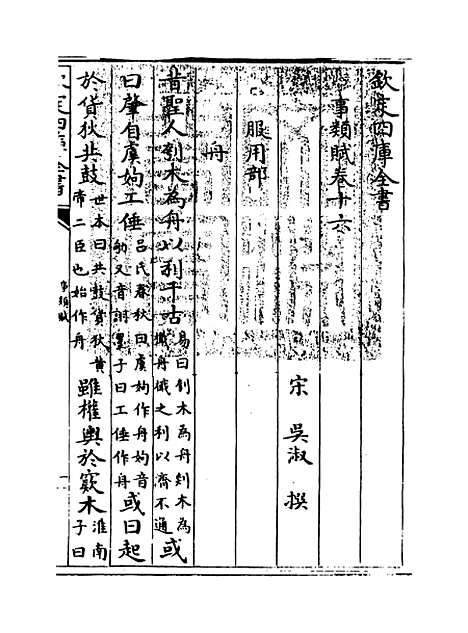 欽定四庫全書
事類賦卷十六
宋 吳淑 撰
服用部
舟
昔聖人刳木為舟以利千古
易曰刳木為舟剡木為
楫舟楫之利以濟不通
或
曰肇自虞姁工倕
呂氏春秋曰虞姁作舟姁音
又音詡墨子曰工倕作舟
或曰起
於貨狄共鼓
世本曰共鼓貨狄黄
帝二臣也始作舟
雖權輿於窾木
淮南
子曰
欽定四庫全書
事類賦
一